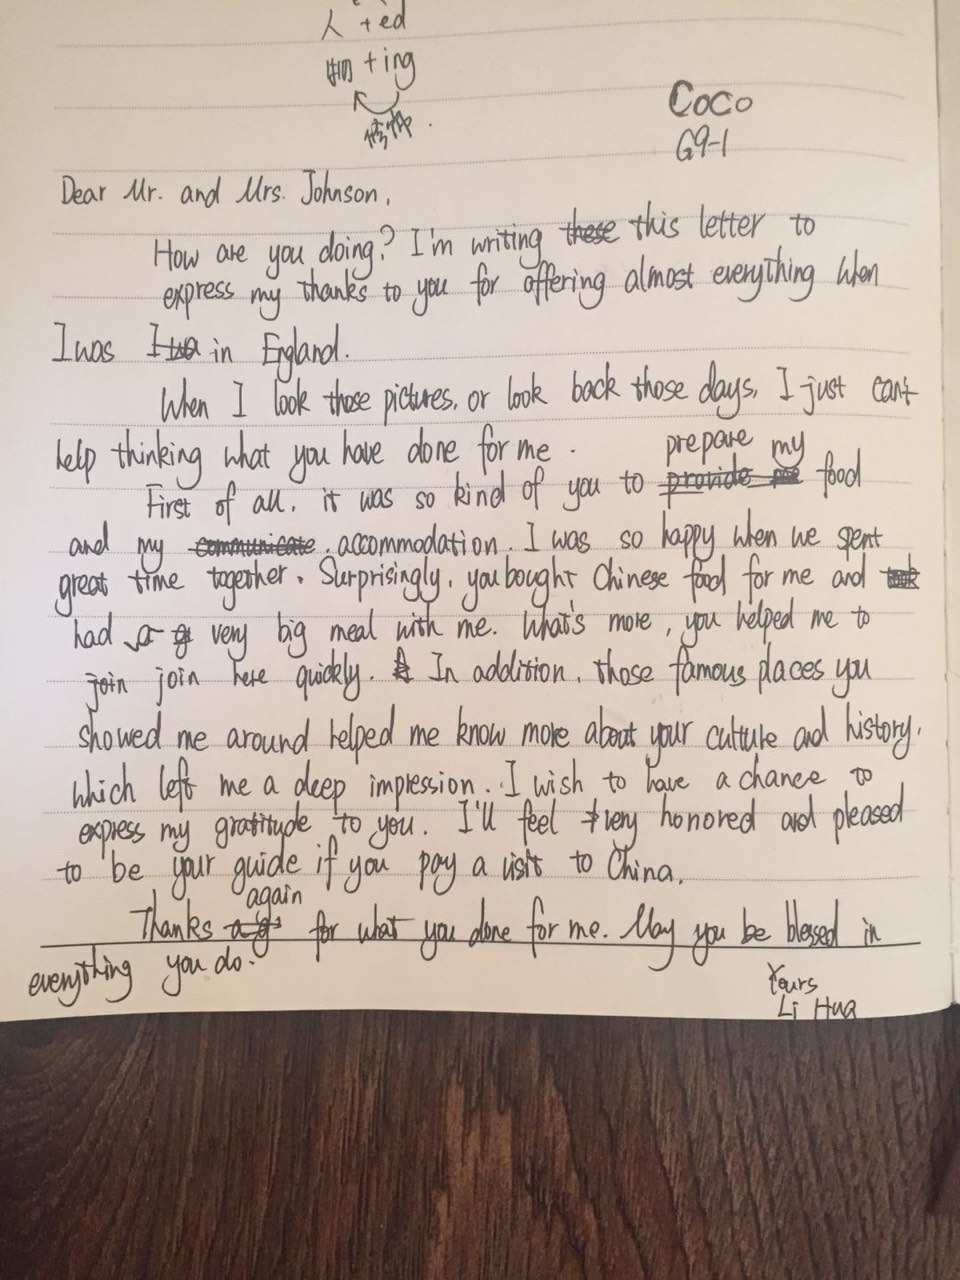 人 +ed
物 +ing
修饰.
Coco
G9-1
Dear Mr. and Mrs. Johnson,
How are you doing? I'm writing these this letter to
express my thanks to you for offering almost everything when
I was I wa in England.
When I look those pictures, or look back those days, I just can't
help thinking what you have done for me.
prepare my
First of all, it was so kind of you to provide me food
and my communicate accommodation. I was so happy when we spent
great time together. Surprisingly, you bought Chinese food for me and
had a very big meal with me. What's more, you helped me to
join join here quickly. In addition, those famous places you
showed me around helped me know more about your culture and history,
which left me a deep impression. I wish to have a chance to
express my gratitude to you. I'll feel very honored and pleased
to be your guide if you pay a visit to China.
again
Thanks for what you done for me. May you be blessed in
everything you do.
Yours
Li Hua